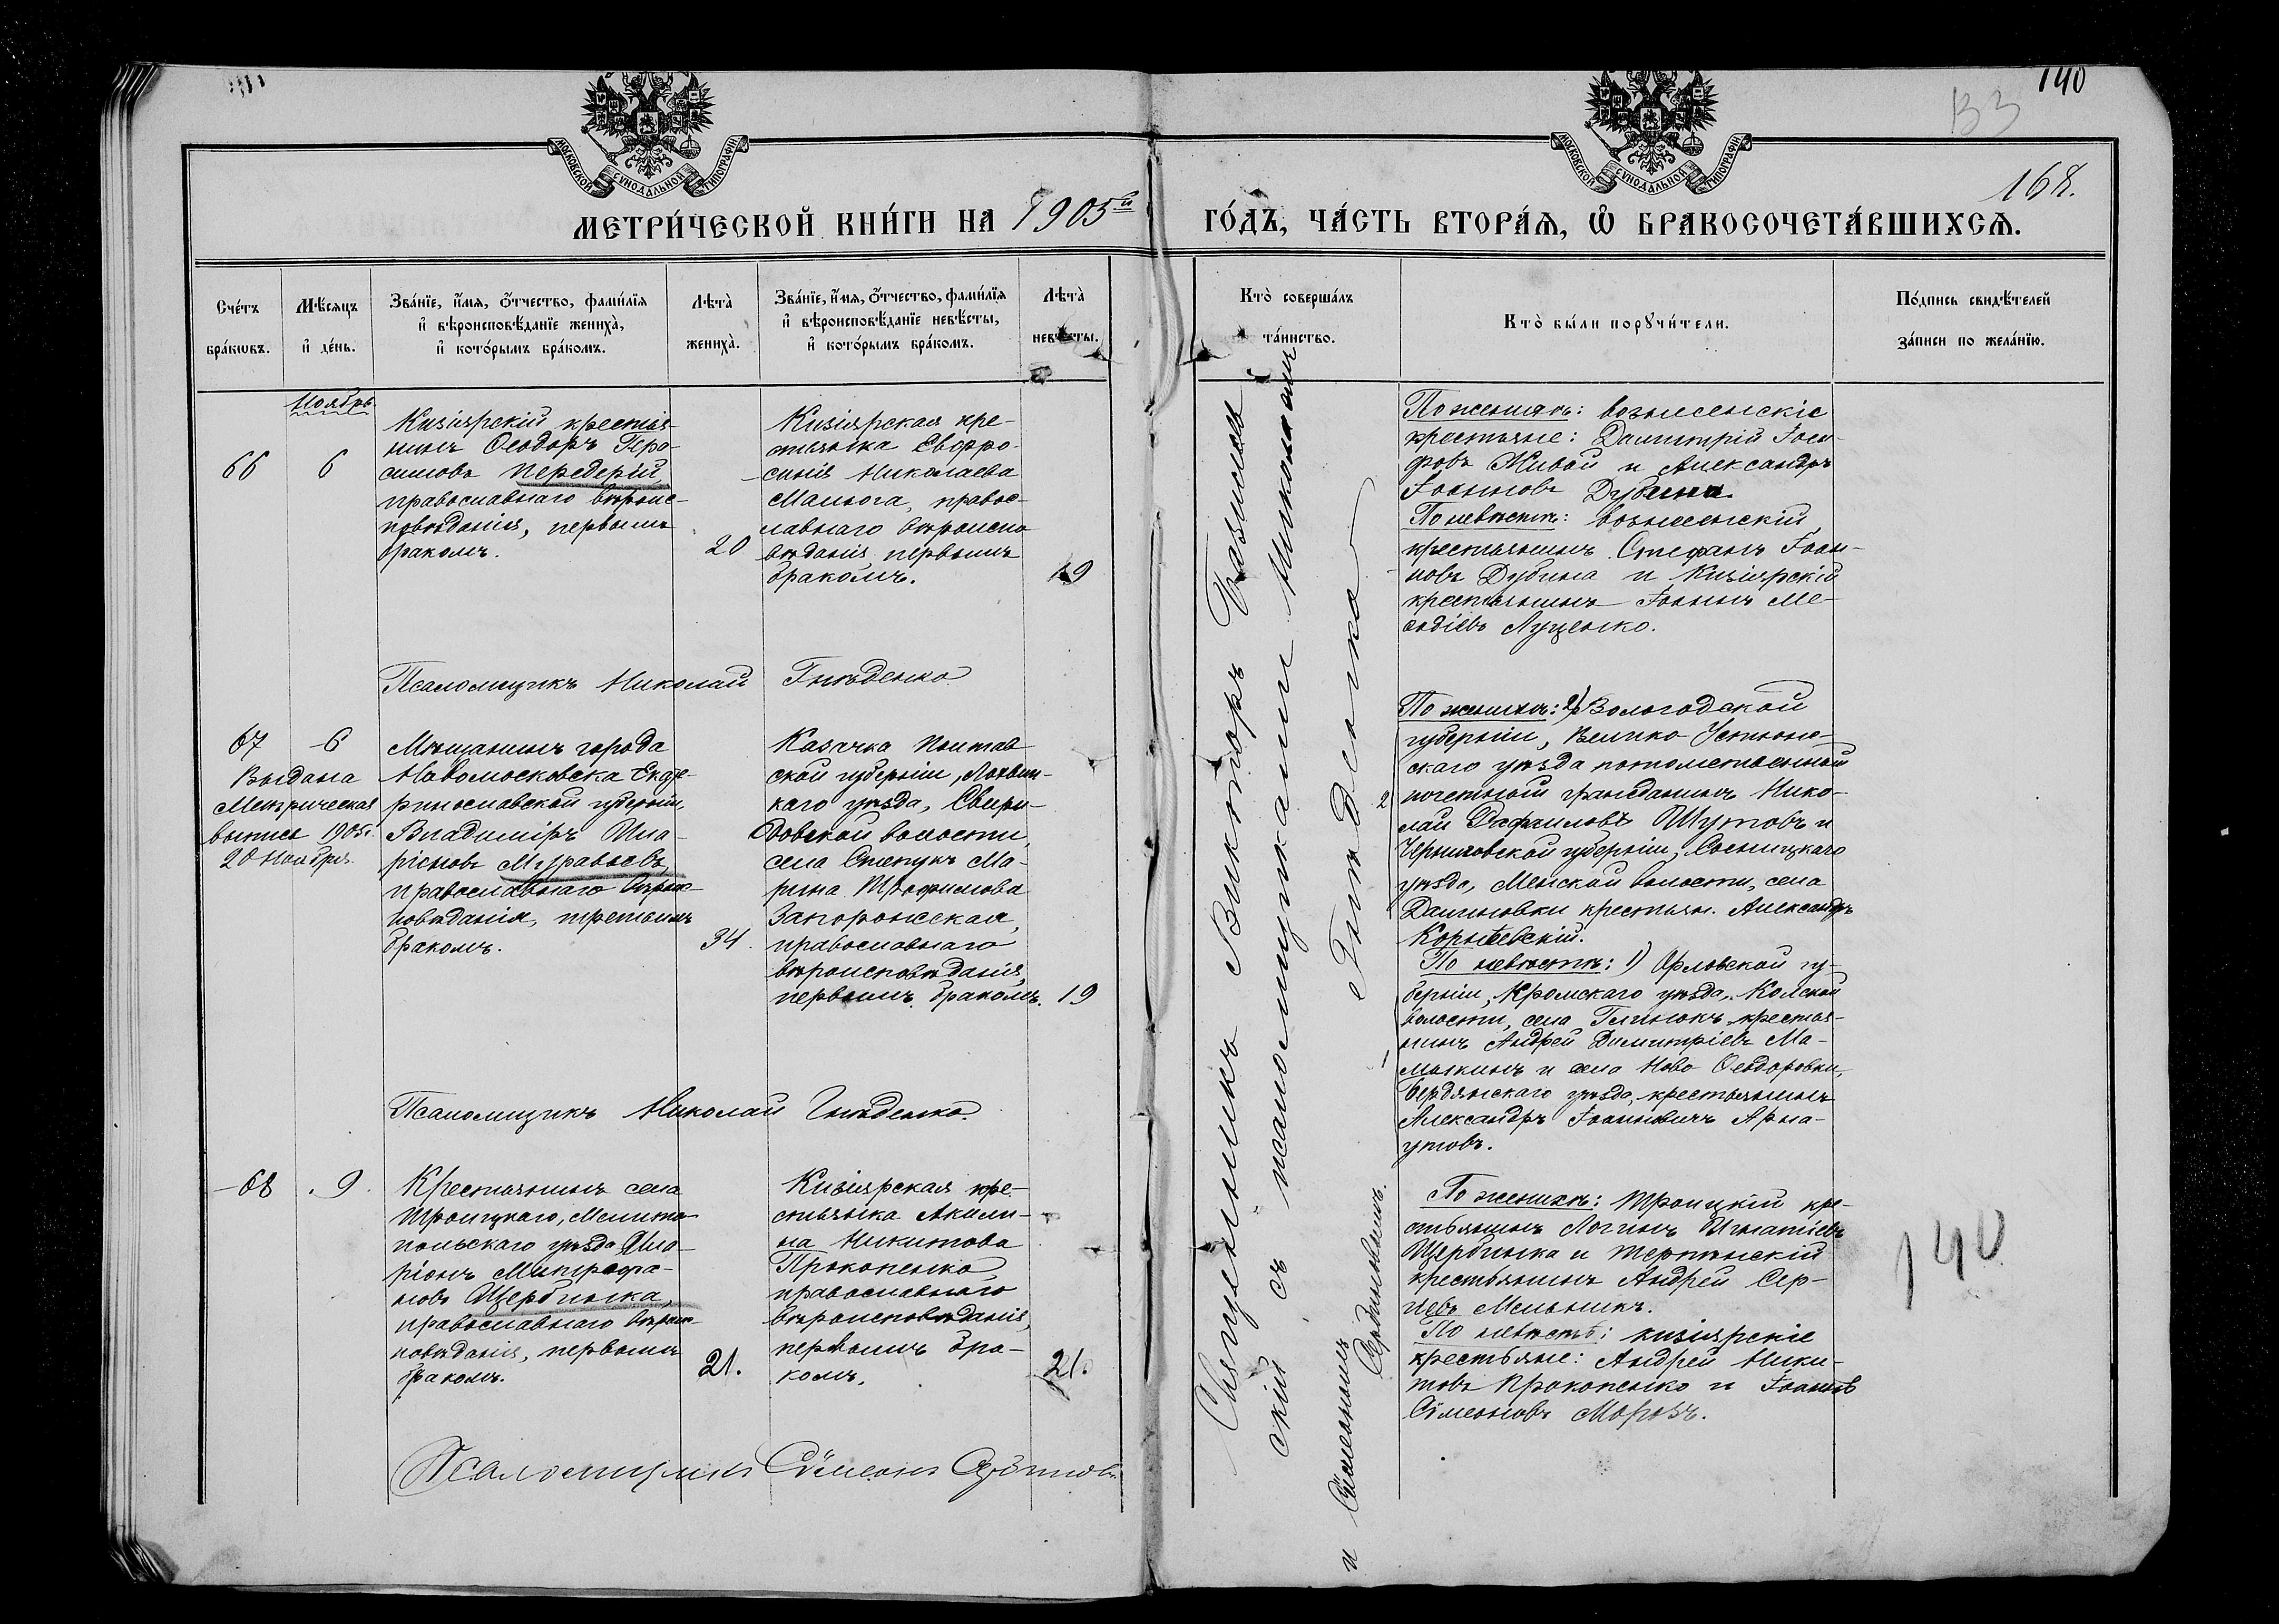 140
133
168.
МОСКОВСКОЙ СѴНОДАЛЬНОЙ ТИПОГРАФІИ
МОСКОВСКОЙ СѴНОДАЛЬНОЙ ТИПОГРАФІИ
МЕТРИ́ЧЕСКОЙ КНИ́ГИ НА 1905й
ГО́ДЪ, ЧА́СТЬ ВТОРА́Ѧ, Ѽ БРАКОСОЧЕТА́ВШИХСѦ.
Сче́тъ
бра́кωвъ.
Мѣ́сяцъ
и҆ де́нь.
Зва́нїе, и҆́мя, ѻ҆́тчество, фами́лїя
и҆ вѣроисповѣ́данїе жениха̀,
и҆ кото́рымъ бра́комъ.
Лѣта̀
жениха̀.
Зва́нїе, и҆́мя, ѻ҆́тчество, фами́лїя
и҆ вѣроисповѣ́данїе невѣ́сты,
и҆ кото́рымъ бра́комъ.
Лѣта̀
невѣ́сты.
Кто̀ соверша́лъ
та́инство.
Кто̀ бы́ли порꙋчи́тели.
По́дпись свидѣ́телей
за́писи по жела́нїю.
Ноябрь.
66
6
Кизіярскій крестья-
нинъ Ѳеодоръ Гера-
симовъ Передерій,
православнаго вѣроис-
повѣданія, первымъ
бракомъ.
20
Кизіярская кре-
стьянка Евфро-
синія Николаева
Малюга, правос-
лавнаго вѣроиспо
вѣданія первымъ
бракомъ.
19
По женихѣ: вознесенскіе
крестьяне: Димитрій Іоси-
фовъ Живой и Александръ
Іоанновъ Дубина.
По невѣстѣ: вознесенскій
крестьянинъ Стефанъ Іоан-
новъ Дубина и Кизіярскій
крестьянинъ Іоаннъ Ме-
ѳодіевъ Луценко.
Псаломщикъ Николай Гнѣденко
67
6
Выдана
Метрическая
выпись 1905г.
20 Ноября
Мѣщанинъ города
Новомосковска Екате-
ринославской губерніи,
Владиміръ Ила-
ріоновъ Муравьевъ,
православнаго вѣроис-
повѣданія, третьимъ
бракомъ.
34.
Казачка Полтав
ской губерніи, Лохвиц-
каго уѣзда, Свири-
довской волости,
села Степукъ Ма-
рина Трофимова
Запорожская,
православнаго
вѣроисповѣданія,
первымъ бракомъ.
19
По женихѣ: 2) Вологодской
губерніи, Велико Устюж-
скаго уѣзда потомственный
почетный гражданинъ Нико-
лай Рафаиловъ Шутовъ и
Черниговской губерніи, Сосницкаго
уѣзда, Менской волости, села
Даниловки крестьян. Александръ
Корнѣевскій.
По невѣстѣ: 1) Орловской гу-
берніи, Кромскаго уѣзда,
волости, села Глинокъ крестья-
нинъ Андрей Димитріевъ Ма-
мыкинъ и села Ново Ѳеодоровки,
Бердянскаго уѣзда, крестьянинъ
Александръ Іоанновичъ Арна-
утовъ.
Псаломщикъ Николай Гнѣденко.
68
9
Крестьянинъ села
Троицкаго, Мелито-
польскаго уѣзда Ила-
ріонъ Митрофа-
новъ Щербинка,
православнаго вѣроис-
повѣданія, первымъ
бракомъ.
21.
Кизіярская кре-
стьянка Акили-
на Никитова
Прокопенко
православнаго
вѣроисповѣданія,
первымъ бра-
комъ.
21.
По женихѣ: Троицкій кре-
стьянинъ Логинъ Игнатіевъ
Щербинка и Терпѣнскій
крестьянинъ Андрей Сер-
гіевъ Мельникъ.
По невѣстѣ: кизіярскіе
крестьяне: Андрей Ники-
товъ Прокопенко и Іоаннъ
Сѵмеоновъ Морозъ.
140
Псаломщикъ Сѵмеонъ
Священникъ Викторъ
скій съ псаломщиками Николаемъ
Гнѣденко
и Сѵмеономъ